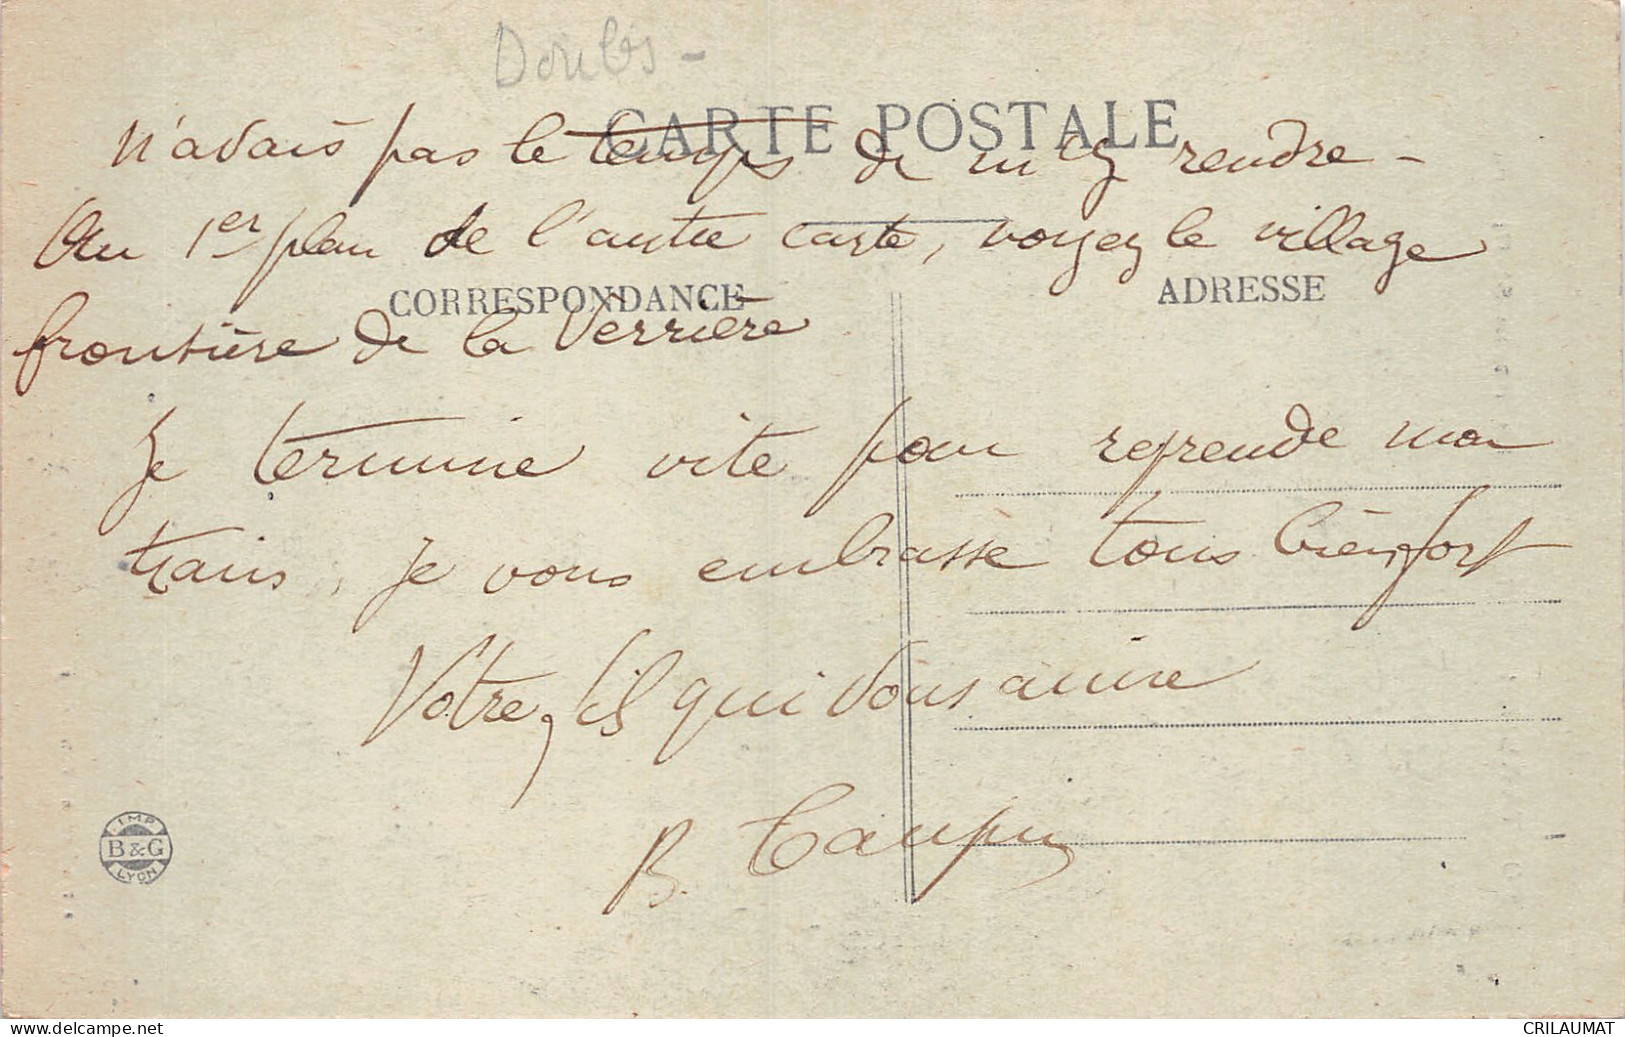 Doubs -
CARTE POSTALE
n'avais pas le temps de m'y rendre -
Au 1er plan de l'autre carte, voyez le village
CORRESPONDANCE
ADRESSE
frontière de la Verrière
Je termine vite pour reprende mon
train, je vous embrasse tous bien fort
Votre fils qui vous aime
B. Taupin
IMP.
B & G
LYON
www.delcampe.net
CRILAUMAT